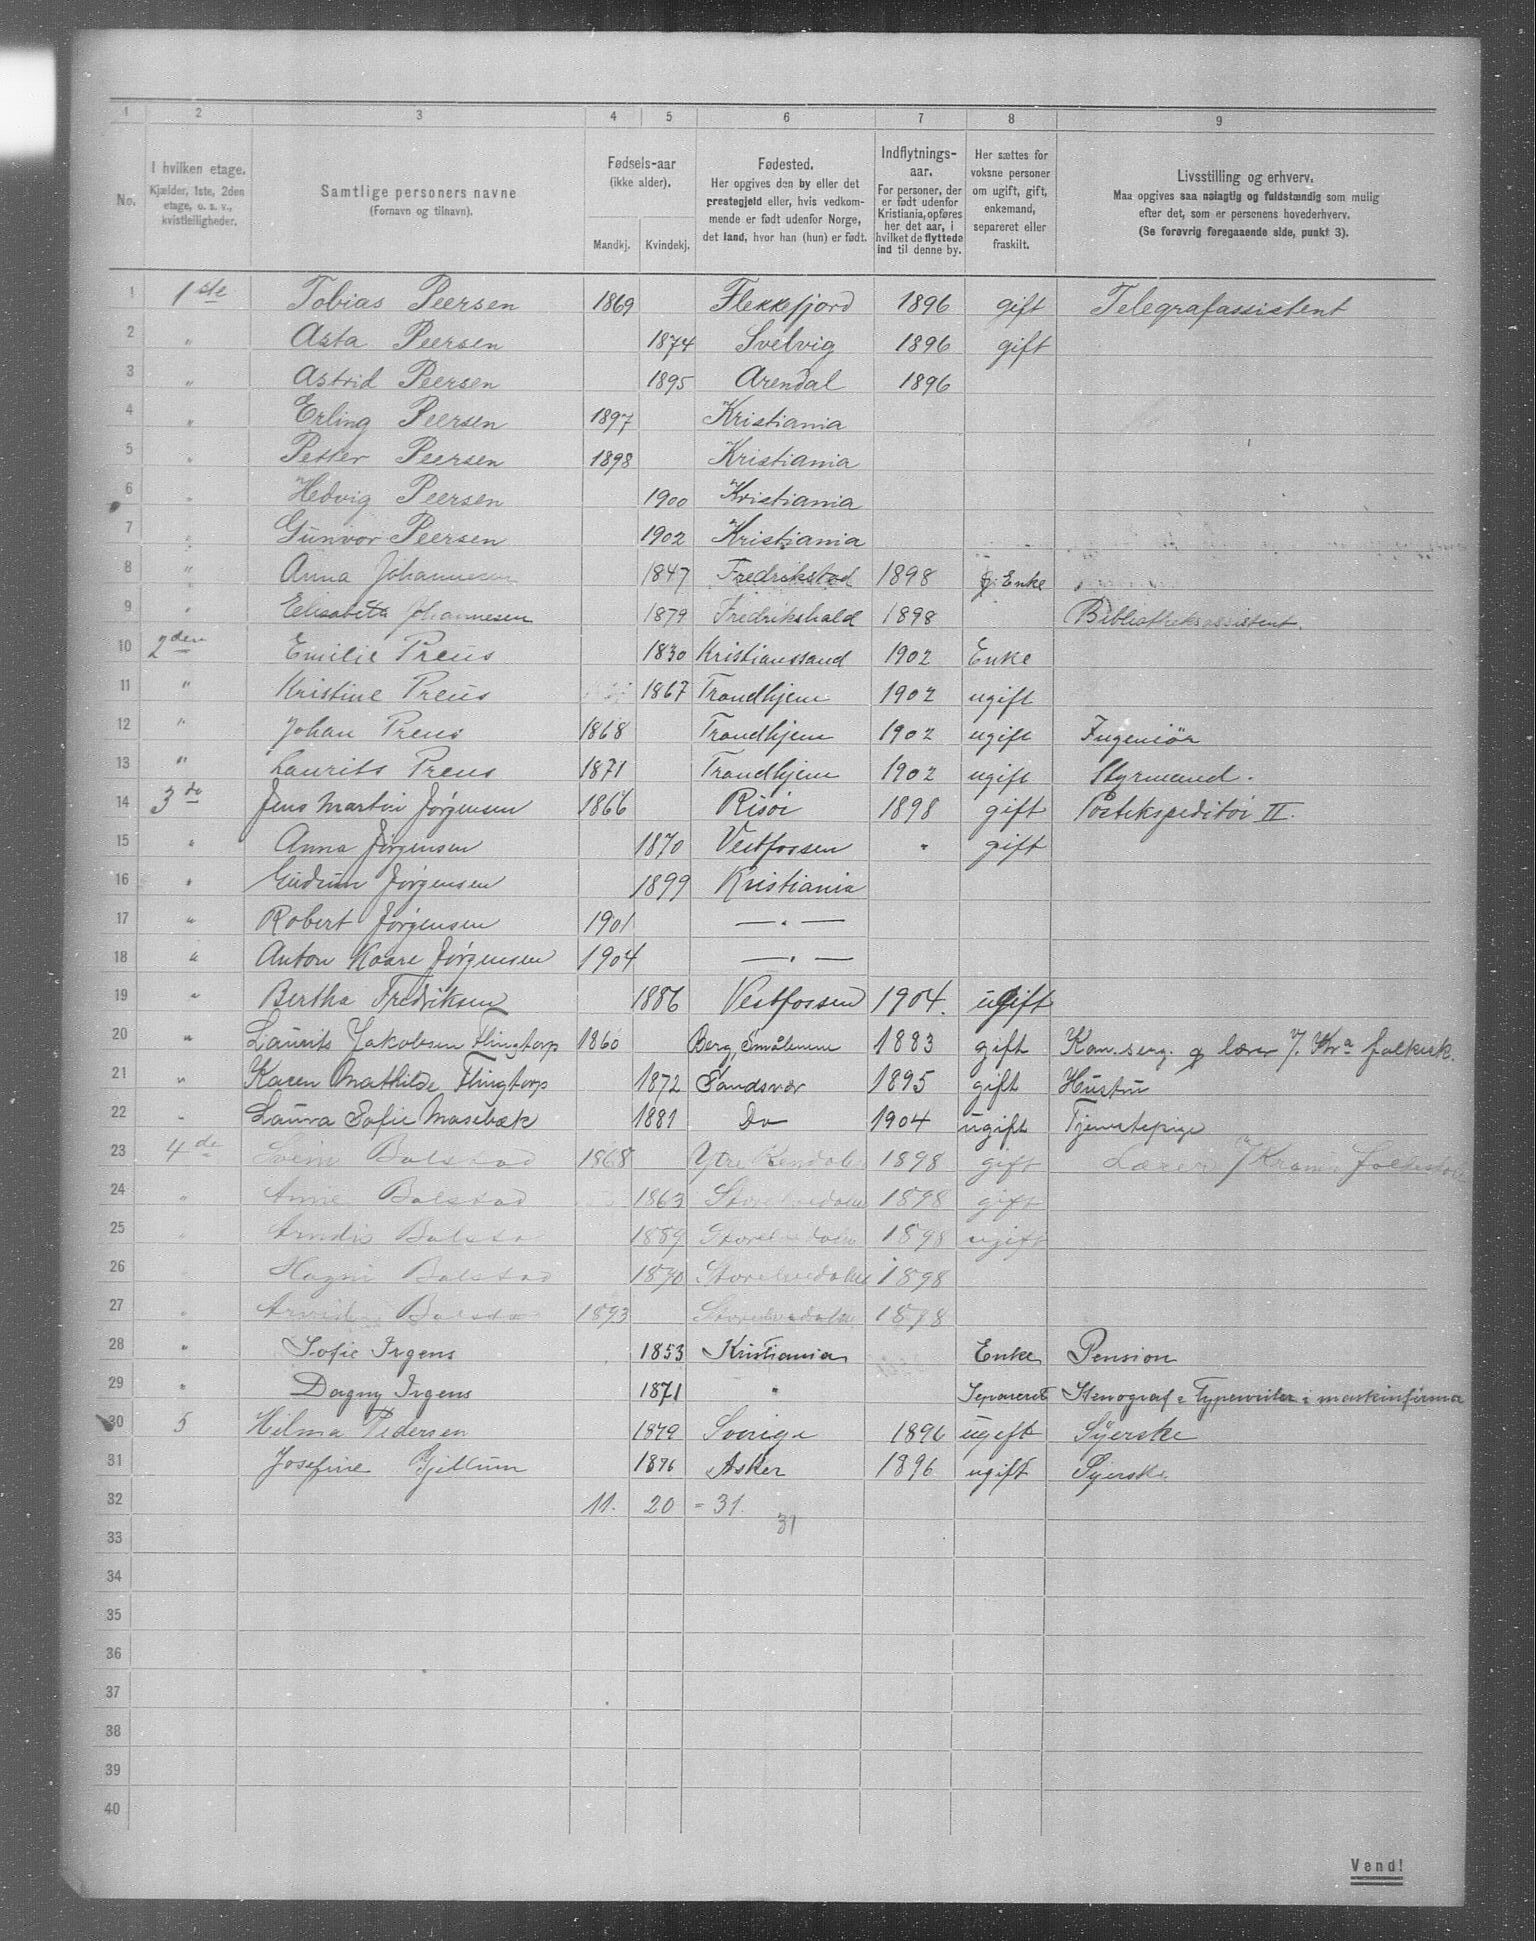 1 2 3 4 5 6 7 8 9
No.
I hvilken etage.
Kjælder, 1ste, 2den
etage, o. s. v.,
kvistleiligheder.
Samtlige personers navne
(Fornavn og tilnavn).
Fødsels-aar
(ikke alder).
Mandkj. Kvindekj.
Fødested.
Her opgives den by eller det
prestegjeld eller, hvis vedkom-
mende er født udenfor Norge,
det land, hvor han (hun) er født.
Indflytnings-
aar.
For personer, der
er født udenfor
Kristiania, opføres
her det aar, i
hvilket de flyttede
ind til denne by.
Her sættes for
voksne personer
om ugift, gift,
enkemand,
separeret eller
fraskilt.
Livsstilling og erhverv.
Maa opgives saa nøiagtig og fuldstændig som mulig
efter det, som er personens hovederhverv.
(Se forøvrig foregaaende side, punkt 3).
1 1ste Tobias Peersen 1869 Flekkefjord 1896 gift Telegrafassistent
2 " Asta Peersen 1874 Svelvig 1896 gift
3 " Astrid Peersen 1895 Arendal 1896
4 " Erling Peersen 1897 Kristiania
5 " Petter Peersen 1898 Kristiania
6 " Hedvig Peersen 1900 Kristiania
7 " Gunvor Peersen 1902 Kristiania
8 " Anna Johannesen 1847 Fredrikstad 1898 Enke
9 " Elisabeth Johannesen 1879 Fredrikshald 1898 Bibliotheksassistent.
10 2den Emilie Preus 1830 Kristianssand 1902 Enke
11 " Kristine Preus 1867 Trondhjem 1902 ugift
12 " Johan Preus 1868 Trondhjem 1902 ugift Ingeniør
13 " Laurits Preus 1871 Trondhjem 1902 ugift Styrmand.
14 3de Jens Martin Jørgensen 1866 Risør 1898 gift Postekspeditør II.
15 " Anna Jørgensen 1870 Vestfossen " gift
16 " Gudrun Jørgensen 1899 Kristiania
17 " Robert Jørgensen 1901 — " —
18 " Anton Kaare Jørgensen 1904 — " —
19 " Bertha Fredriksen 1886 Vestfossen 1904. ugift
20 " Laurits Jakobsen Flingtorp 1860 Berg, Smålenene 1883 gift lærer v/ Kra folkesk.
21 " Karen Mathilde Flingtorp 1872 Sandsvær 1895 gift Hustru
22 " Laura Sofie Masebæk 1881 Do 1904 ugift Tjenestepige
23 4de Balstad 1868 Ytre Rendalen 1898 gift Lærer v/ folkeskole
24 " Anne Balstad 1863 Storelvedalen 1898 gift
25 " Arndis Balstad 1889 Storelvedalen 1898 ugift
26 " Balstad 1890 Storelvedalen 1898
27 " Balstad 1893 Storelvedalen 1898
28 " Sofie Irgens 1853 Kristiania Enke Pension
29 " Dagny Irgens 1871 " Separeret Stenograf & Typewriter i maskinfirma
30 5 Hilma Pedersen 1879 Sverige 1896 ugift Syerske
31 Josefine Gjellum 1876 Asker 1896 ugift Syerske
32 11. 20 = 31.
31
33
34
35
36
37
38
39
40
Vend!